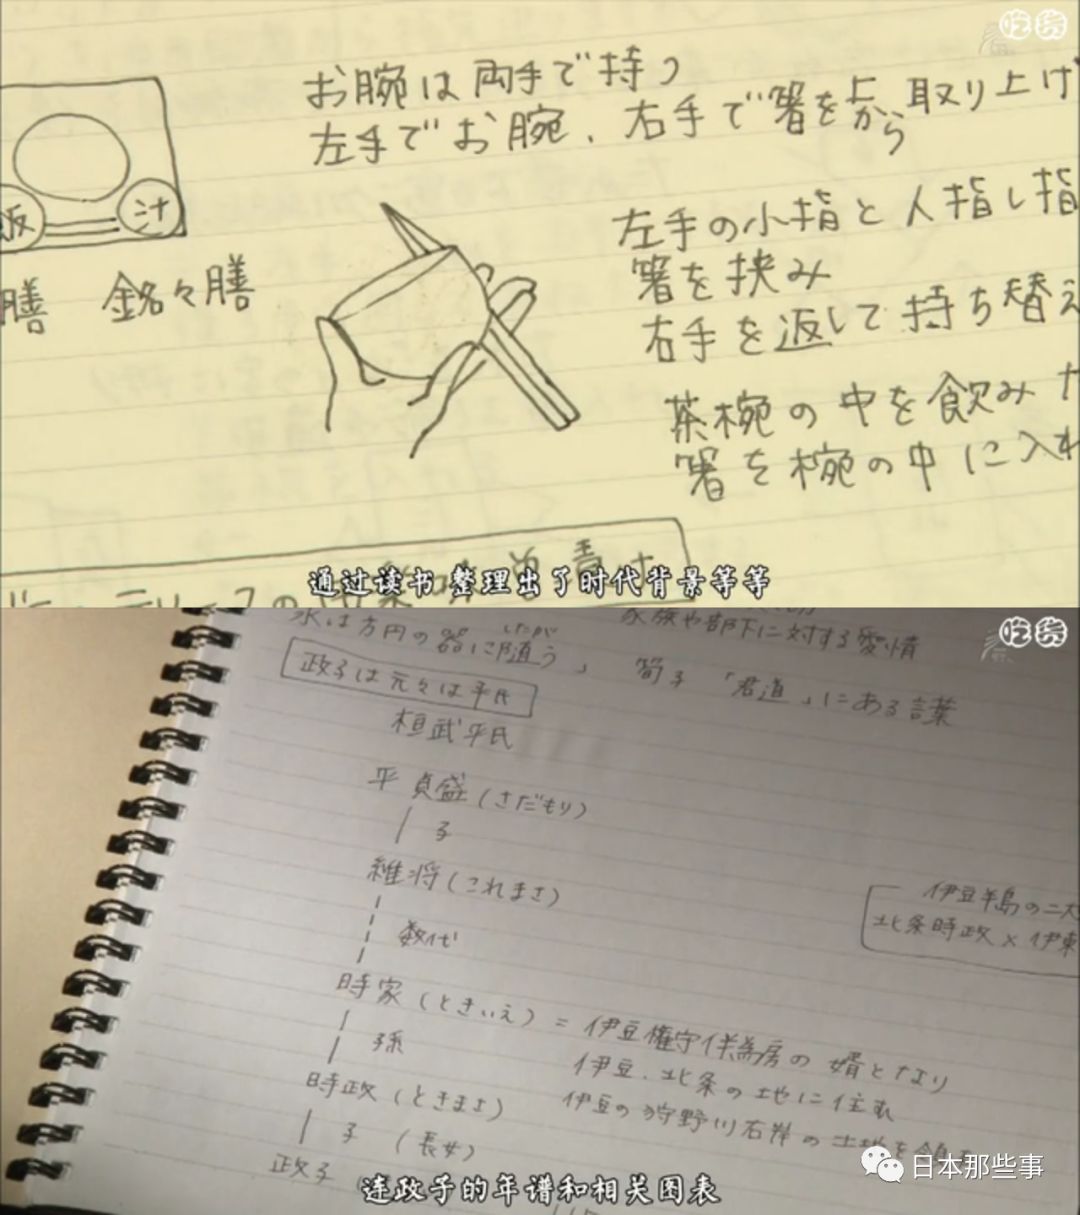 吃货
お腕は両手で持つ
左手でお腕、右手で箸を上から取り上げ
飯
汁
膳 銘々膳
左手の小指と人指し指
箸を挟み
右手を返して持ち替え
茶椀の中を飲み
箸を椀の中に入れ
通过读书 整理出了时代背景等等
吃货
家族や部下に対する愛情
水は方円の器に随う」 荀子「君道」にある言葉
したが
政子は元々は平氏
桓武平氏
平 貞盛(さだもり)
子
維将(これまさ)
数代
伊豆半島の二大
北条時政×伊東
時家(ときいえ)=伊豆権守伴為房の婿となり
孫
伊豆、北条の地に住む
時政(ときまさ)
伊豆の狩野川右岸の土地を
子(長女)
政子
连政子的年谱和相关图表
日本那些事